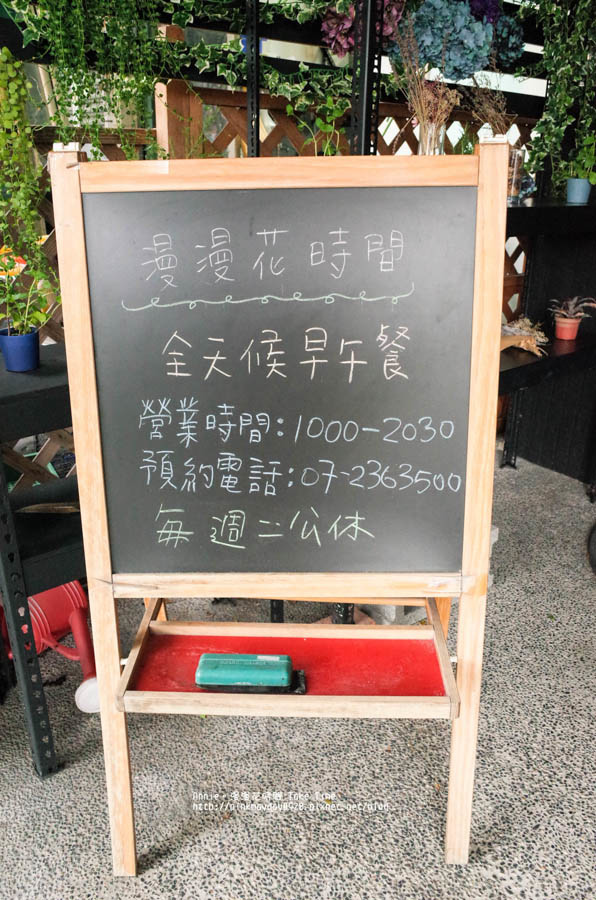 漫漫花時間
全天候早午餐
營業時間：1000-2030
預約電話：07-2363500
每週二公休
Annie。漫漫花時間 Take Time